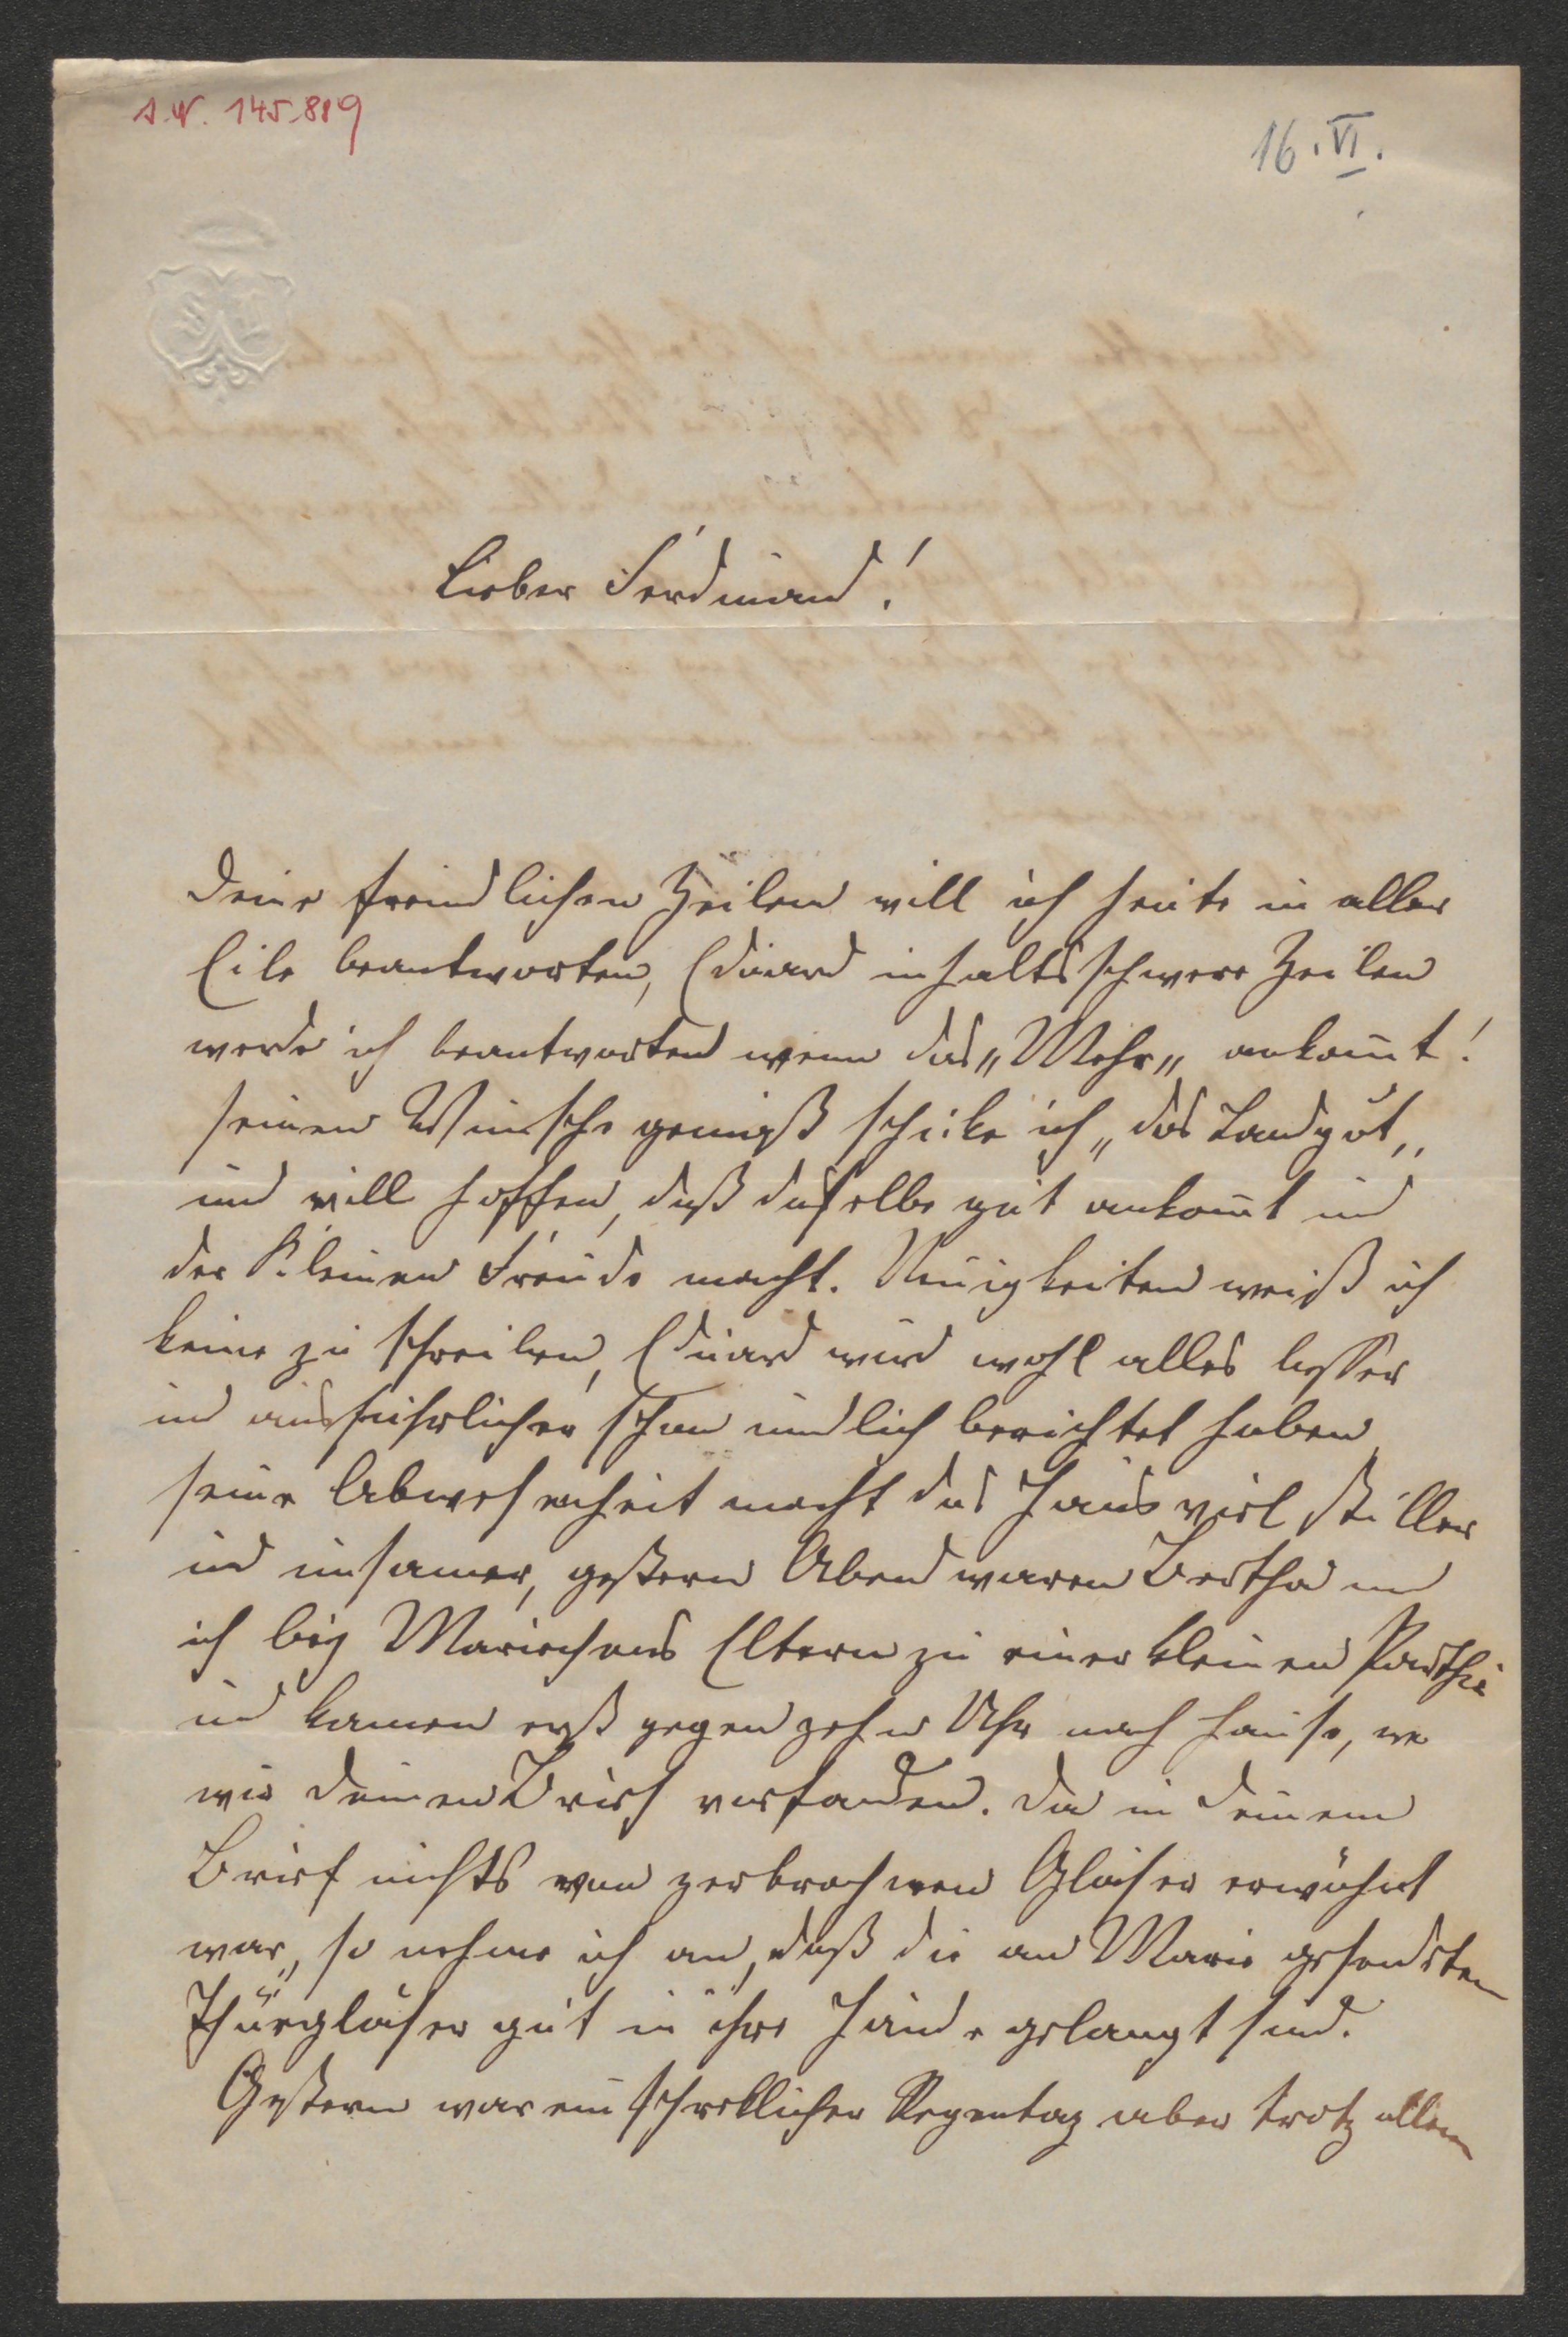 I.N. 145.889
16. VI.
Lieber Ferdinand!
Deine freundlichen Zeilen will ich heute in aller
Eile beantworten, Eduard inhaltsschwere Zeilen
werde ich beantworten wenn das „Mehr„ ankomt!
seinen Wunsche gemäß schicke ich „das Landgut„
und will hoffen, daß dasselbe gut ankomt und
der Kleinen Freude macht. Neuigkeiten weiß ich
keine zu schreiben, Eduard wird wohl alles besser
und ausführlicher schon mündlich berichtet haben
seine Abwesenheit macht das Haus viel stiller
und einsamer, gestern Abend waren Bertha und
ich bey Mariechens Eltern zu einer kleinen Parthie
und kamen erst gegen zehn Uhr nach Hause, wo
wir Deinen Brief vorfanden. Da in Deinem
Brief nichts von zerbrochenen Gläser erwähnt
war, so nehme ich an, daß die an Marie gesendeten
Thürgläser gut in ihre Hände gelangt sind.
Gestern war ein schrecklicher Regentag aber trotz allem